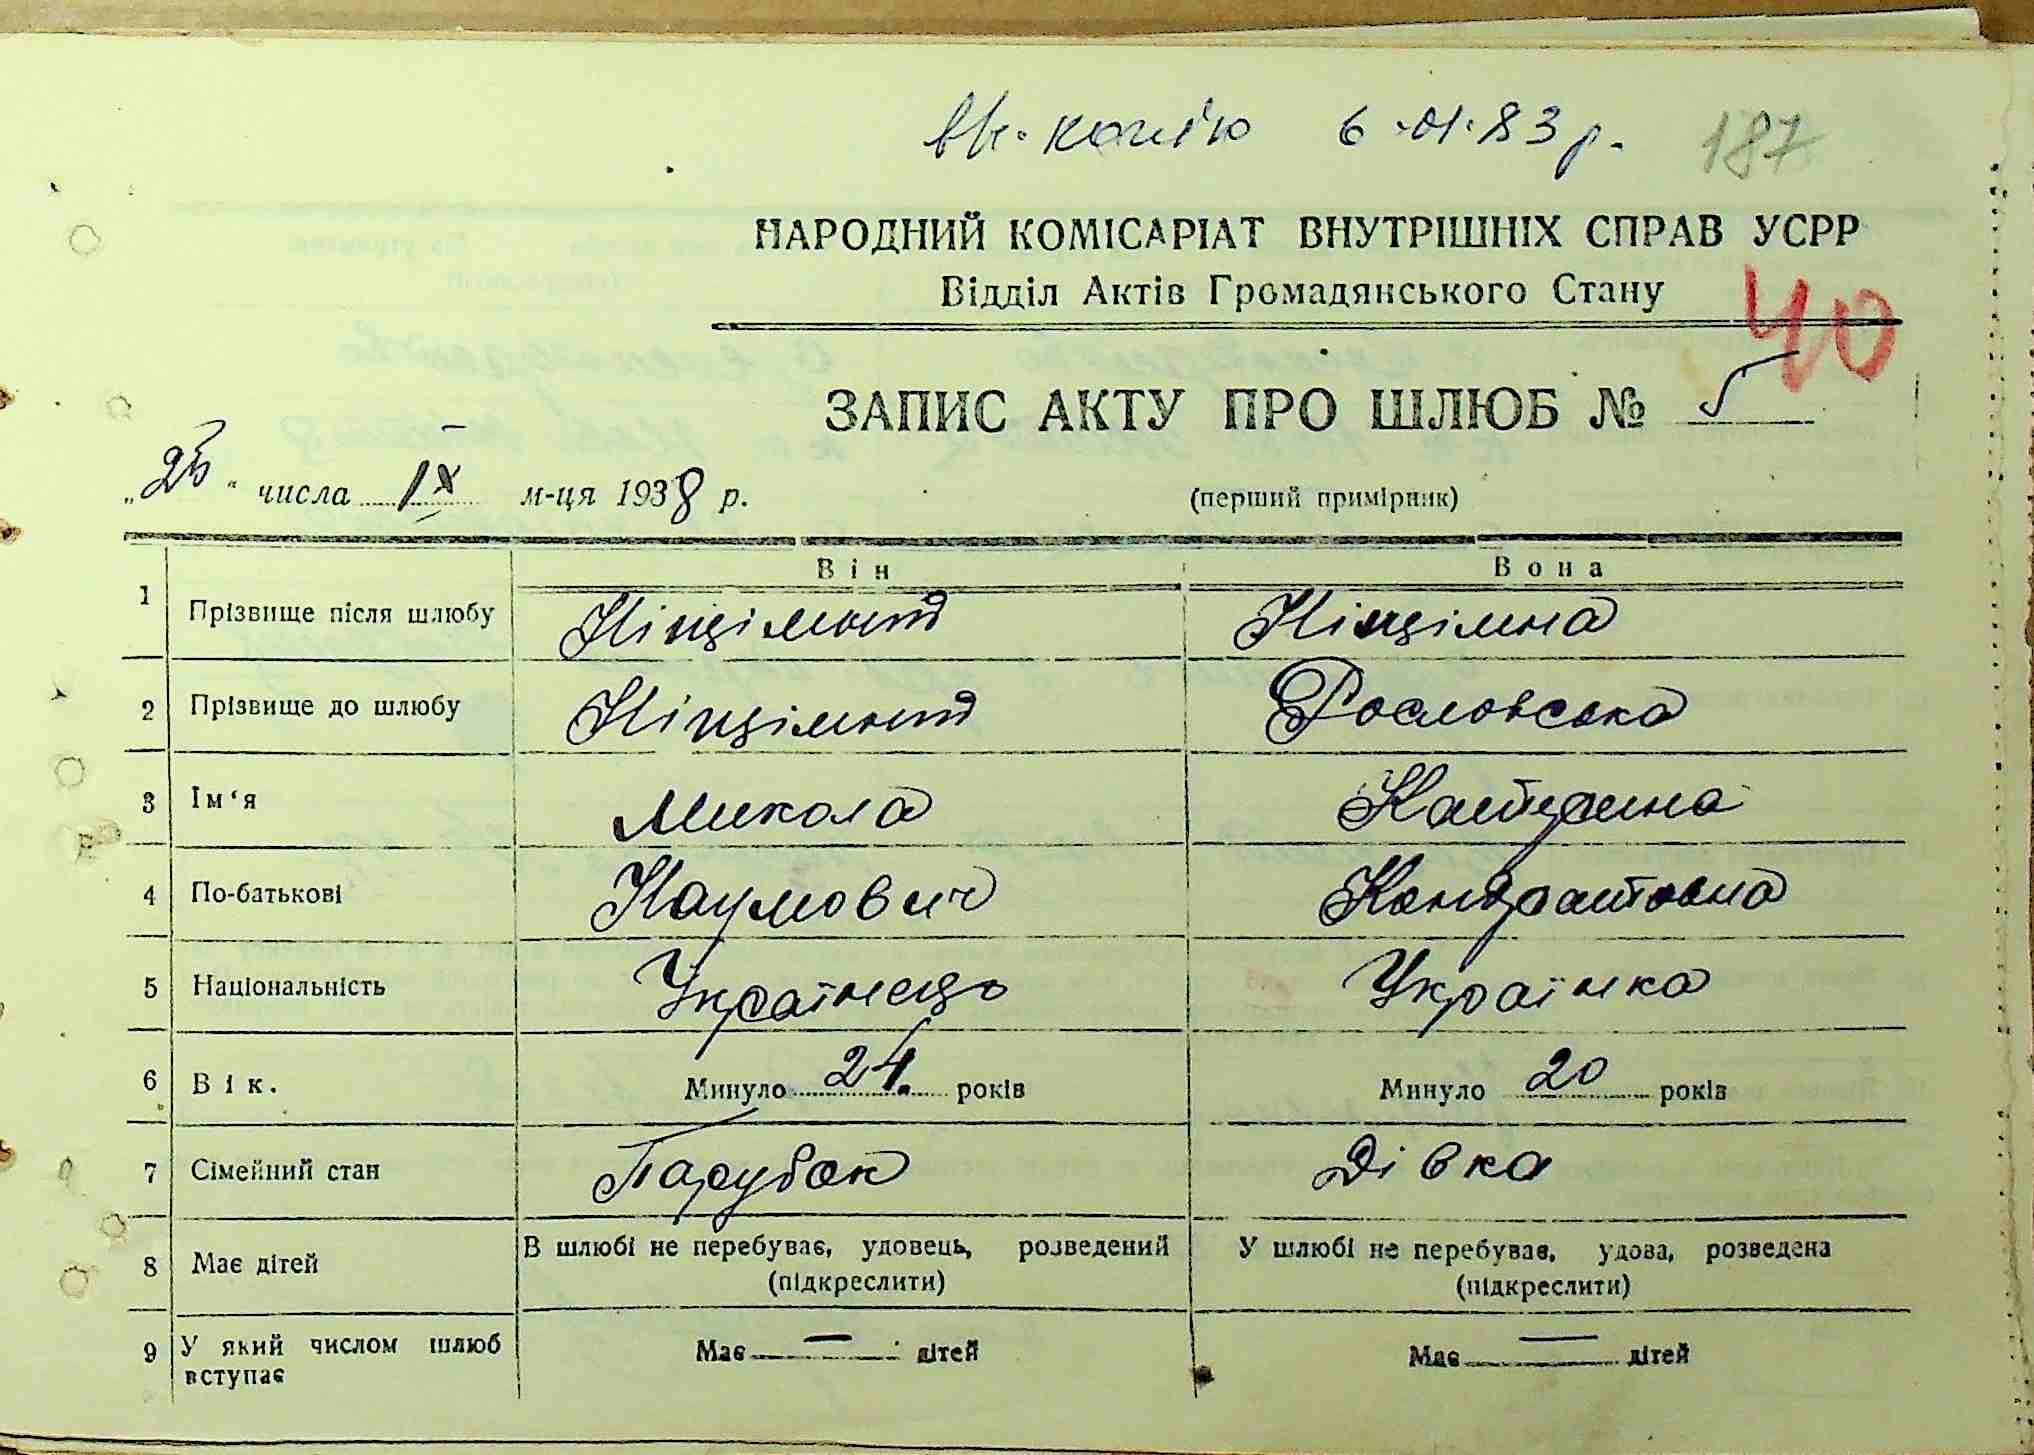 вк. копію 6.01.83 р. 187
НАРОДНИЙ КОМІСАРІАТ ВНУТРІШНІХ СПРАВ УСРР
Відділ Актів Громадянського Стану
40
ЗАПИС АКТУ ПРО ШЛЮБ № 5
„25“ числа IX м-ця 1938 р. (перший примірник)
Він Вона
1 Прізвище після шлюбу
2 Прізвище до шлюбу Рословська
3 Ім‘я Микола Катерина
4 По-батькові Наумович Кондратовна
5 Національність Українець Українка
6 Вік. Минуло 24 років Минуло 20 років
7 Сімейний стан Парубок Дівка
8 Має дітей В шлюбі не перебуває, удовець, розведений У шлюбі не перебуває, удова, розведена
(підкреслити) (підкреслити)
9 У який числом шлюб Має — дітей Має — дітей
вступає